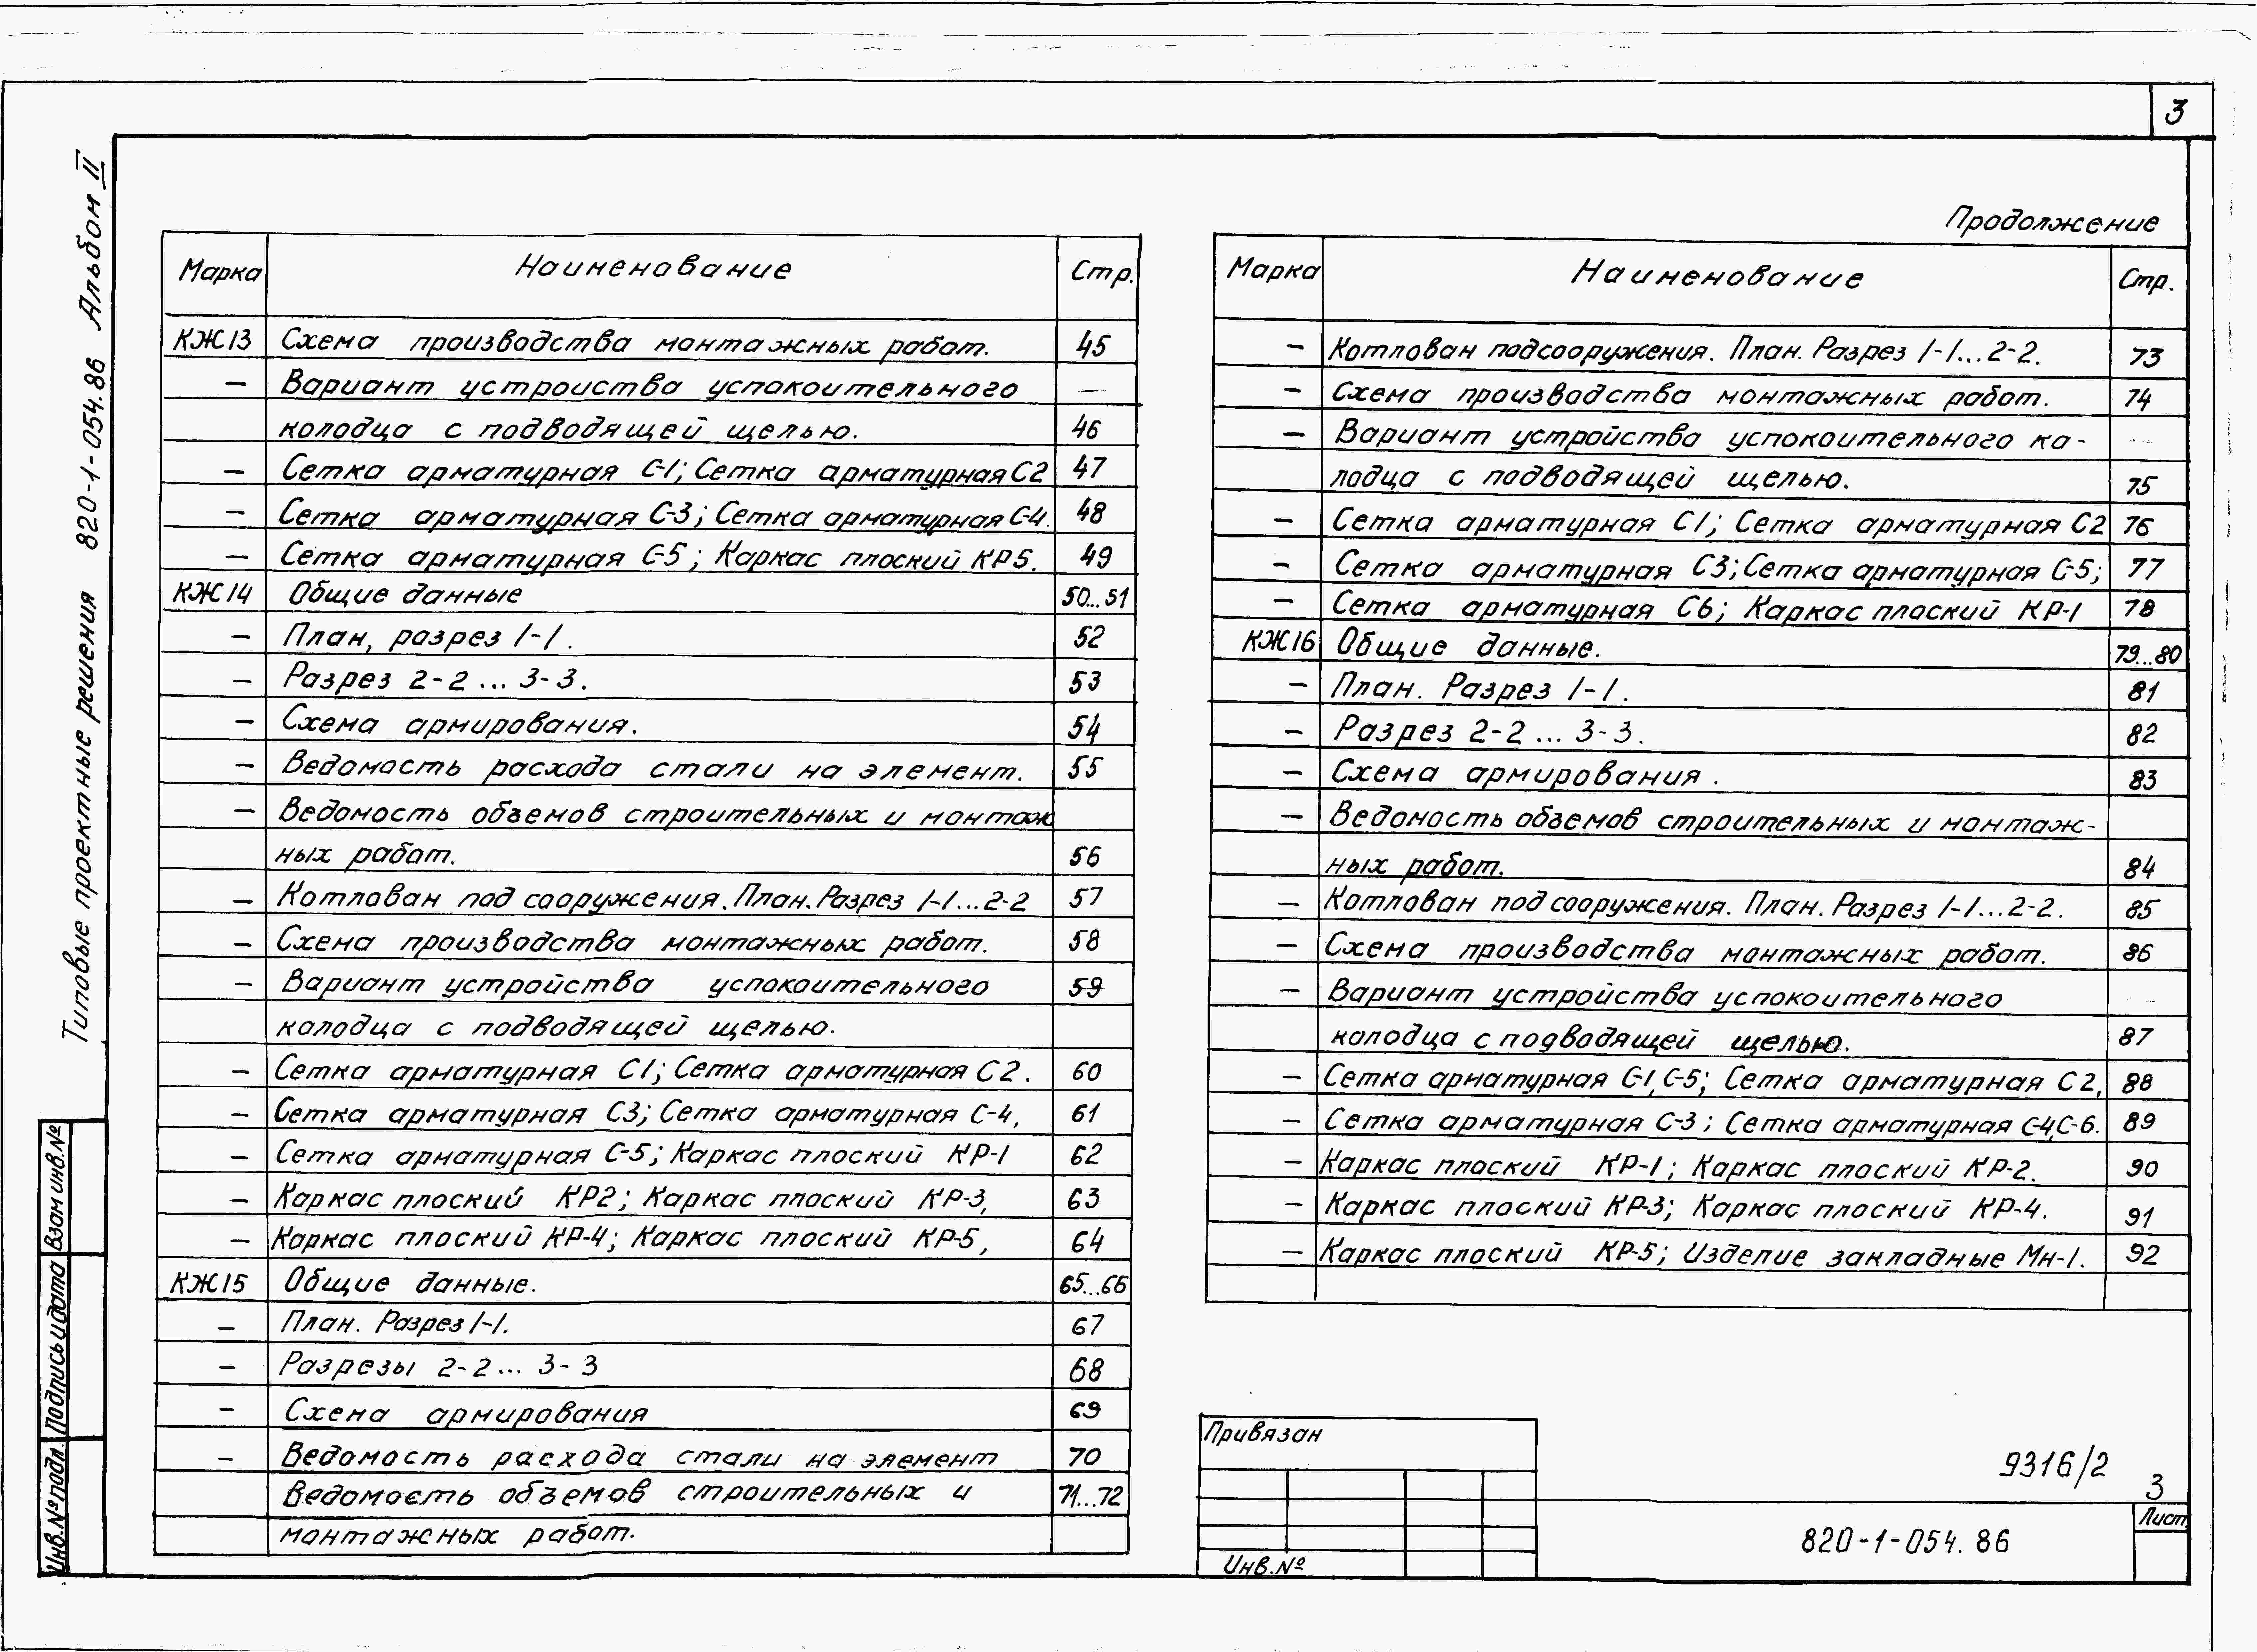 3
Типовые проектные решения 820-1-054.86 Альбом II
Продолжение
Марка Наименование Стр.
КЖ13 Схема производства монтажных работ. 45
— Вариант устроиства успокоительного —
колодца с подводящей щелью. 46
— Сетка арматурная С-1; Сетка арматурная С2 47
— Сетка арматурная С-3; Сетка арматурная С-4. 48
— Сетка арматурная С-5; Каркас плоский КР5. 49
КЖ14 Общие данные 50...51
— План, разрез 1-1. 52
— Разрез 2-2 ... 3-3. 53
— Схема армирования. 54
— Ведомость расхода стали на элемент. 55
— Ведомость объемов строительных и монтаж
ных работ. 56
— Котлован под сооружения. План. Разрез 1-1...2-2 57
— Схема производства монтажных работ. 58
— Вариант устройства успокоительного 59
колодца с подводящей щелью.
— Сетка арматурная С1; Сетка арматурная С2. 60
— Сетка арматурная С3; Сетка арматурная С-4, 61
— Сетка арматурная С-5; Каркас плоский КР-1 62
— Каркас плоский КР2; Каркас плоский КР-3, 63
— Каркас плоский КР-4; Каркас плоский КР-5, 64
КЖ15 Общие данные. 65...66
— План. Разрез 1-1. 67
— Разрезы 2-2... 3-3 68
— Схема армирования 69
— Ведомость расхода стали на элемент 70
Ведомость объемов строительных и 71...72
монтажных работ.
Марка Наименование Стр.
— Котлован под сооружения. План. Разрез 1-1...2-2. 73
— Схема производства монтажных работ. 74
— Вариант устройства успокоительного ко- —
лодца с подводящей щелью. 75
— Сетка арматурная С1; Сетка арматурная С2 76
— Сетка арматурная С3; Сетка арматурная С-5; 77
— Сетка арматурная С6; Каркас плоский КР-1 78
КЖ16 Общие данные. 79...80
— План. Разрез 1-1. 81
— Разрез 2-2 ... 3-3. 82
— Схема армирования. 83
— Ведомость объемов строительных и монтаж-
ных работ. 84
— Котлован под сооружения. План. Разрез 1-1...2-2. 85
— Схема производства монтажных работ. 86
— Вариант устройства успокоительного —
колодца с подводящей щелью. 87
— Сетка арматурная С-1, С-5; Сетка арматурная С2, 88
— Сетка арматурная С-3; Сетка арматурная С-4, С-6. 89
— Каркас плоский КР-1; Каркас плоский КР-2. 90
— Каркас плоский КР-3; Каркас плоский КР-4. 91
— Каркас плоский КР-5; Изделие закладные Мн-1. 92
Взам инв.№
Подпись и дата
Инв.№ подл.
Привязан
Инв.№
9316/2
3
820-1-054.86
Лист